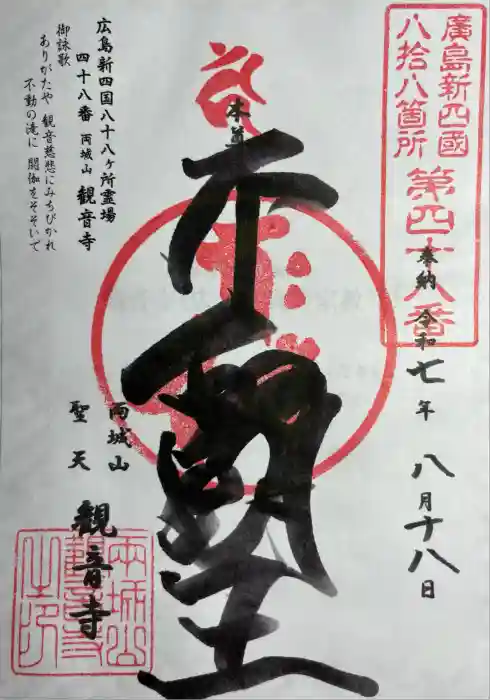 廣島新四國
八拾八箇所
第四十八番
奉納 令和七年 八月十八日
本尊
不動明王
両城山
聖天
観音寺
両城山
観音寺
之印
広島新四国八十八ヶ所霊場
四十八番 両城山 観音寺
御詠歌
ありがたや 観音慈悲にみちびかれ
不動の滝に 閼伽をそそいで